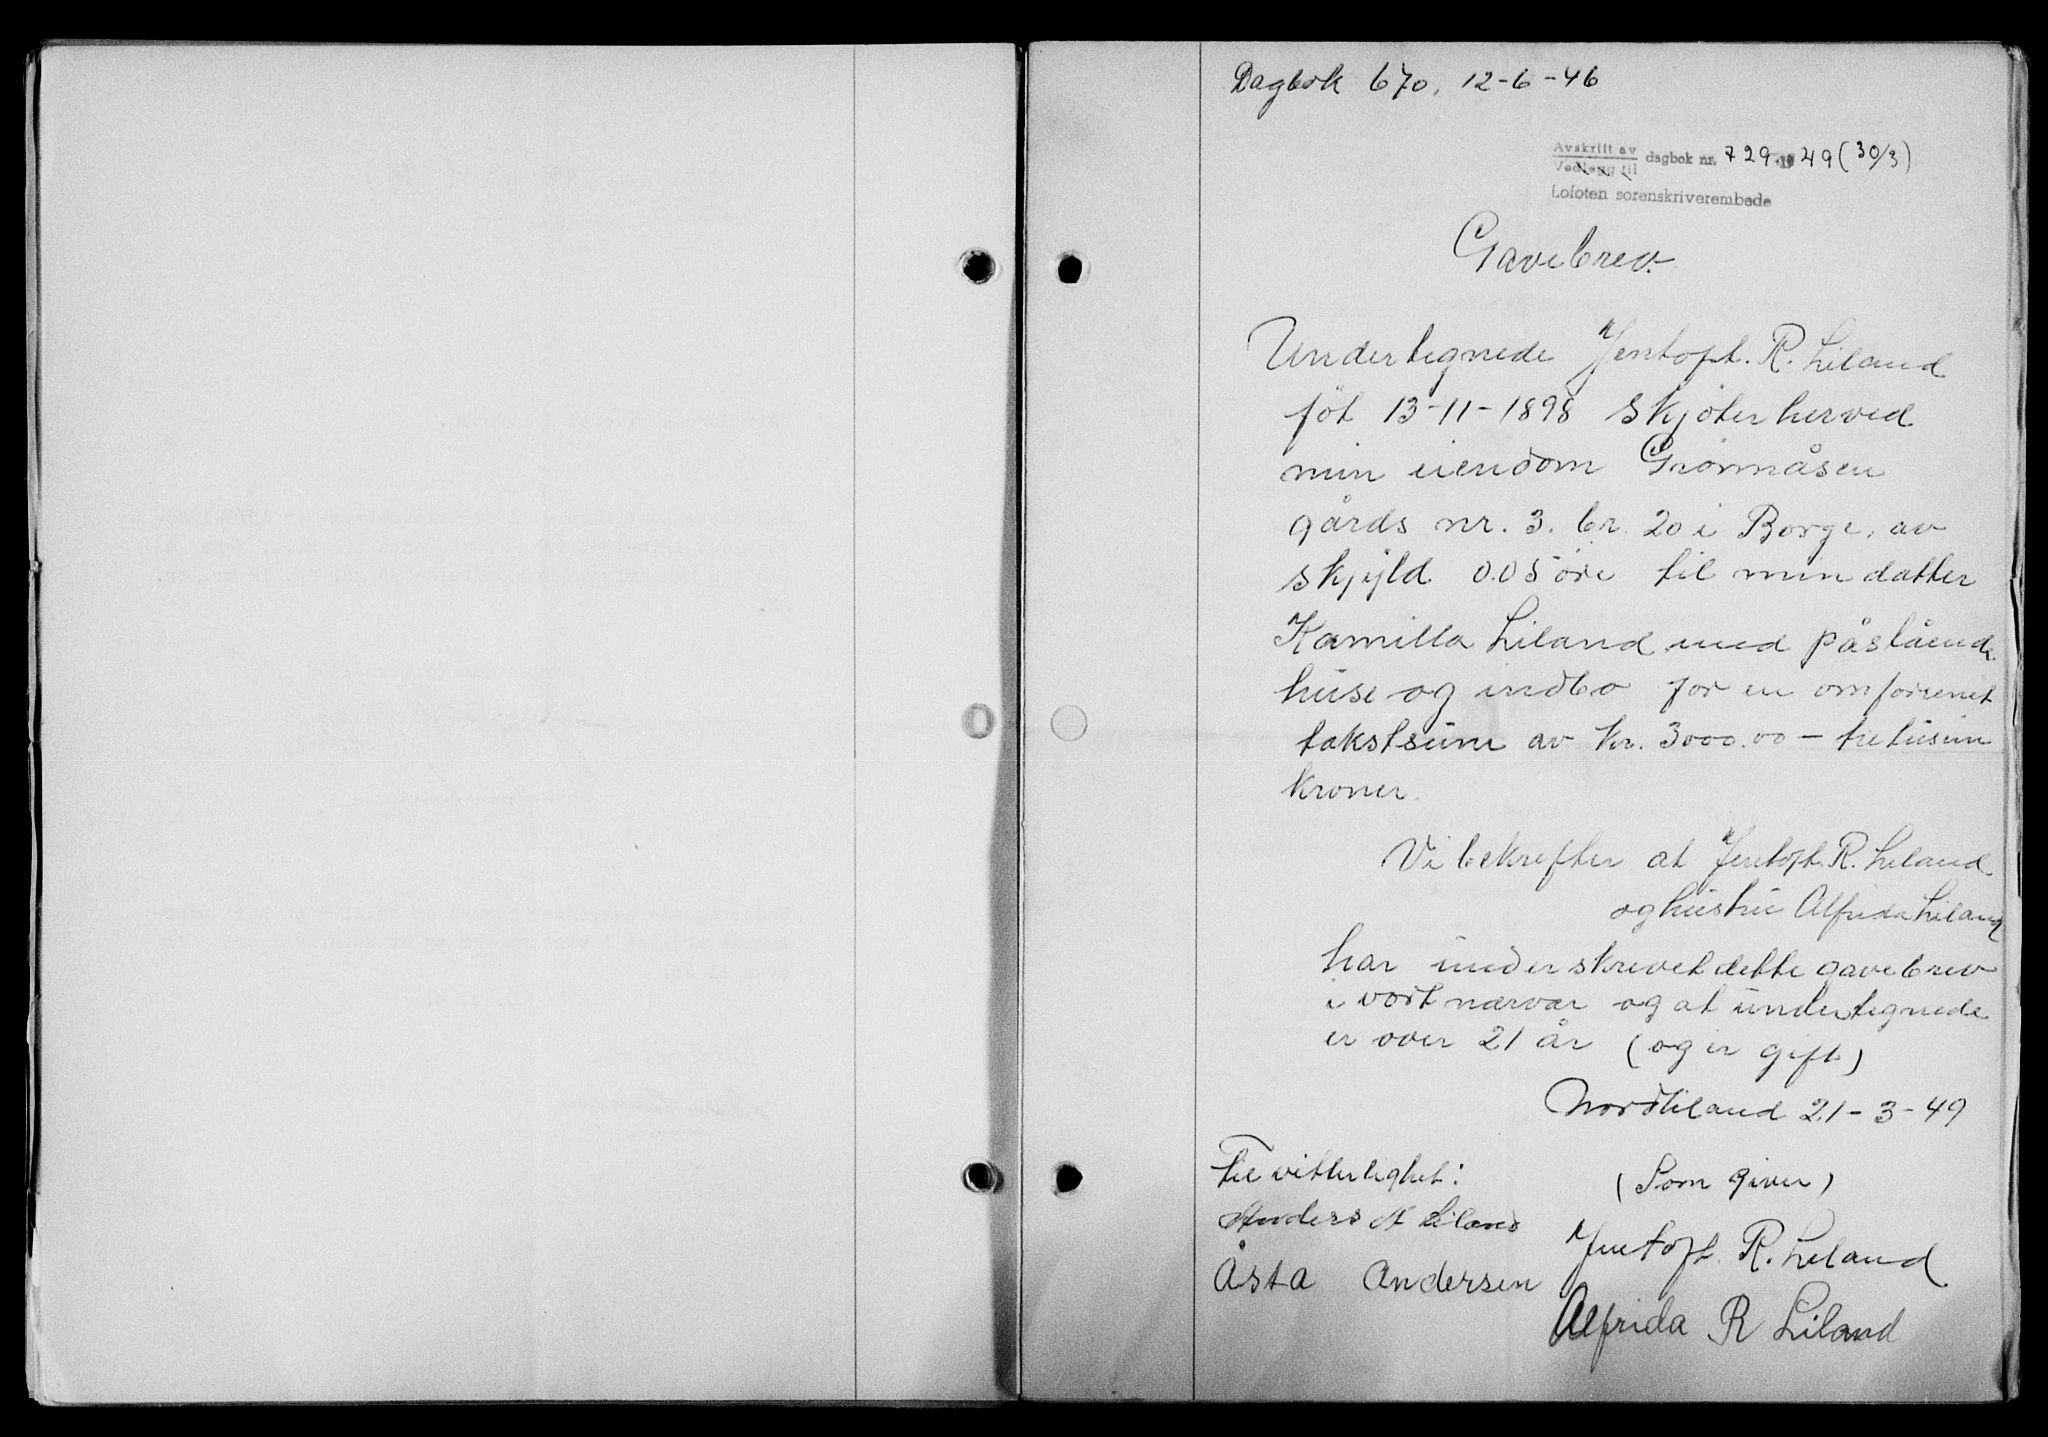 Dagbok 670, 12-6-46
Avskrift av
Vedlegg til
dagbok nr. 729 1949 (30/3)
Lofoten sorenskriverembede
Gavebrev.
Undertegnede Jentoft. R. Liland
føt 13-11-1898 skjøter herved
min eiendom Grønmåsen
gårds nr. 3. br. 20 i Borge, av
skyld 0.05 øre til min datter
Kamilla Liland med påstående
huse og indbo for en omforenet
takstsum av kr. 3000.00 – tretusin
kroner.
Vi bekrefter at Jentoft. R. Liland
og hustru Alfrida Liland
har underskrevet dette gavebrev
i vort nærvær og at undertegnede
er over 21 år (og er gift)
Nordliland 21-3-49
Til vitterlighet:
(Som giver)
Anders A Liland
Jentoft. R. Liland
Åsta Andersen
Alfrida R Liland